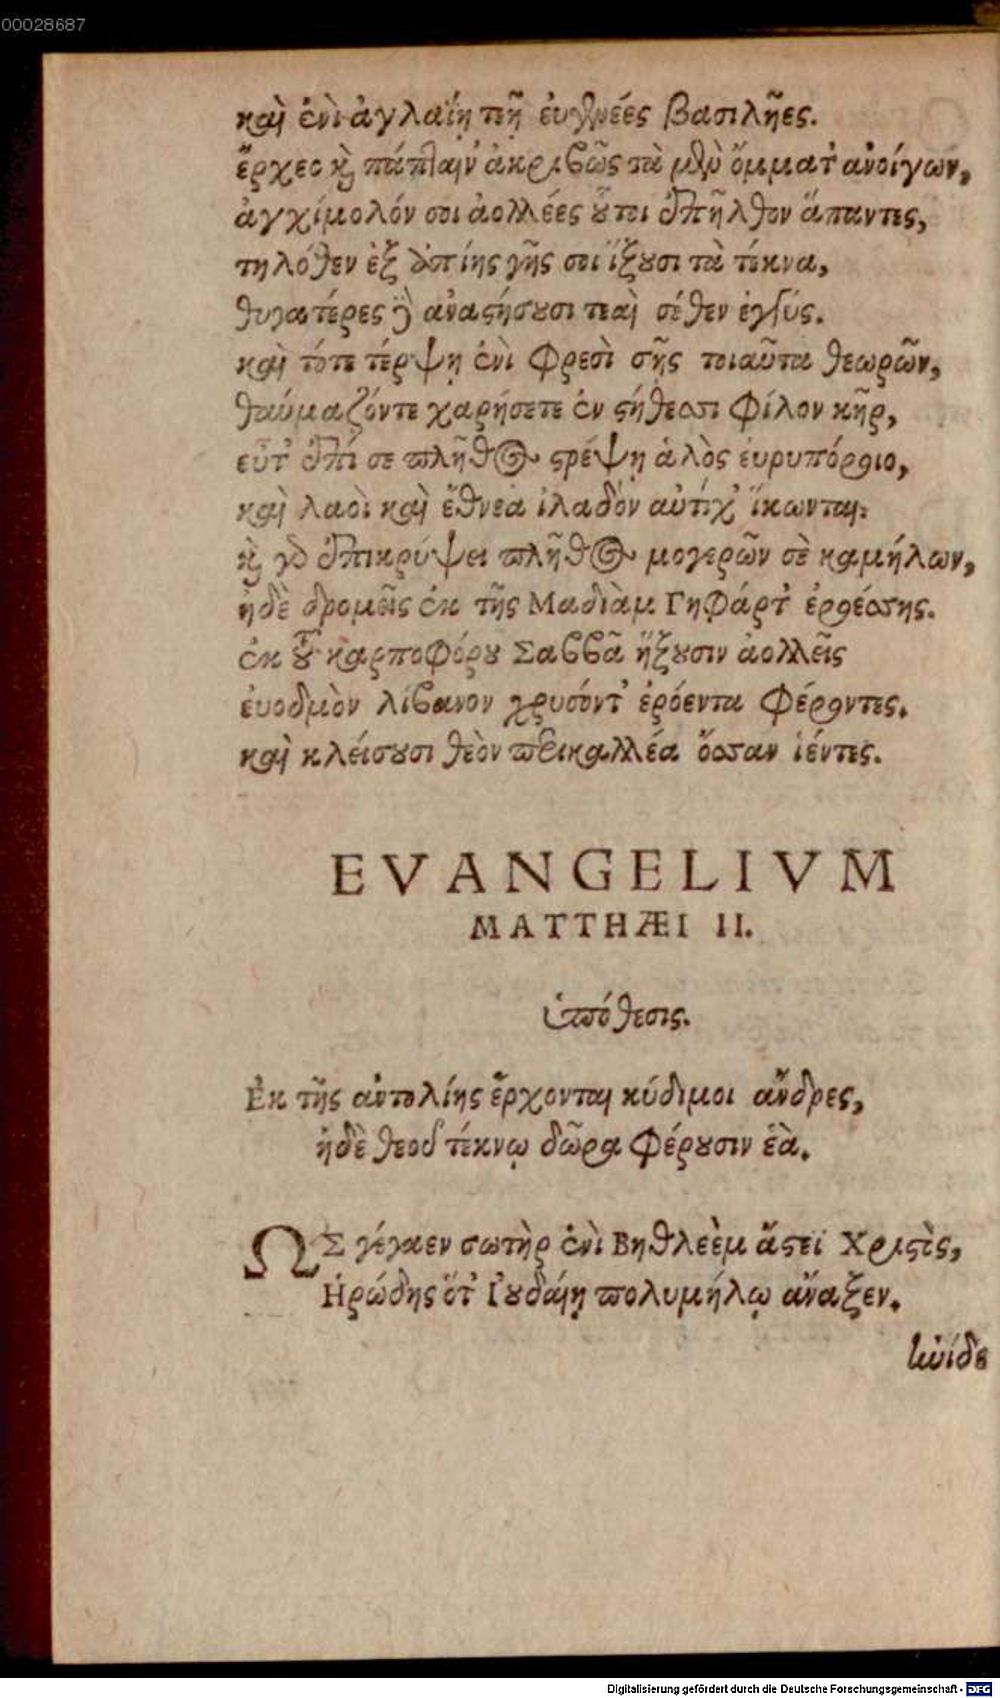 00028687
καὶ ἐνὶ ἀγλαΐῃ τεῇ ἐυγενέες βασιλῆες.
ἔρχεο καὶ πάπταιν' ἀκριβῶς τὰ μὲν ὄμματ' ἀνοίγων,
ἀγχίμολόν σοι ἀολλέες οὗτοι ἐπῆλθον ἅπαντες,
τηλόθεν ἐξ ἀπίης γῆς σοι ἵξουσι τὰ τέκνα,
θυγατέρες δὲ ἀναστήσουσι τεαὶ σέθεν ἐγγύς.
καὶ τότε τέρψῃ ἐνὶ φρεσὶ σῆς τοιαῦτα θεωρῶν,
θαύμαζόντε χαρήσετε ἐν στήθεσσι φίλον κῆρ,
εὖτ' ἐπί σε πλῆθος στρέψῃ ἁλὸς ἐυρυπόροιο,
καὶ λαοὶ καὶ ἔθνεα ἰλαδὸν αὐτίχ' ἵκωνται:
καὶ γὰρ ἐπικρύψει πλῆθος μογερῶν σὲ καμήλων,
ἠδὲ δρομεῖς ἐκ τῆς Μαδιὰμ Γηφάρτ' ἐρσέσσης.
ἐκ τοῦ καρποφόρου Σαββᾶ ἥξουσιν ἀολλεῖς
ἐυοδμὸν λίβανον χρυσόντ' ἐρόεντα φέροντες.
καὶ κλείσουσι θεὸν περικαλλέα ὄσσαν ἱέντες.
EVANGELIVM
MATTHÆI II.
ὑπόθεσις.
Ἐκ τῆς ἀντολίης ἔρχονται κύδιμοι ἄνδρες,
ἠδὲ θεοῦ τέκνῳ δῶρα φέρουσιν ἑὰ.
ΩΣ γέγαεν σωτὴρ ἐνὶ Βηθλεὲμ ἄστεϊ Χριστὸς,
Ἡρώδης ὅτ' Ἰουδαίῃ πολυμήλῳ ἄναξεν.
ἠνίδε
Digitalisierung gefördert durch die Deutsche Forschungsgemeinschaft - DFG